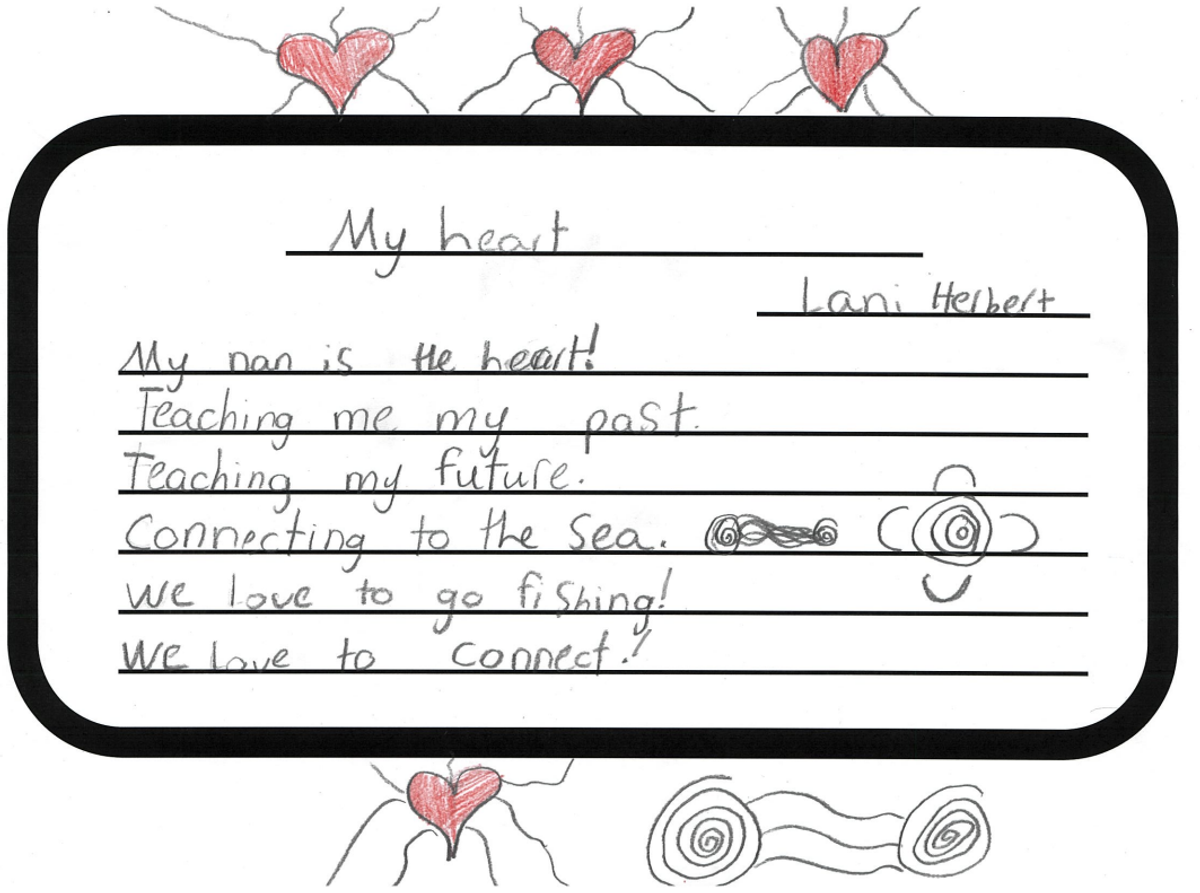 My heart
Lani Herbert
My nan is the heart!
Teaching me my past.
Teaching my future.
Connecting to the sea.
We love to go fishing!
We love to connect!